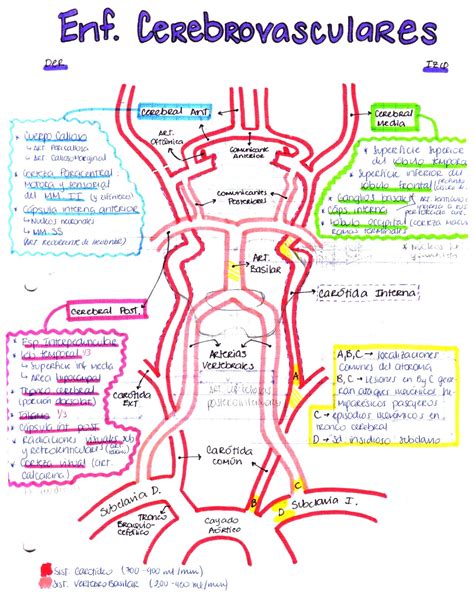 Enf. Cerebrovasculares
Der
Izq
Cerebral Ant.
Cuerpo Calloso
↳ Art. Pericallosa
↳ Art. Callosomarginal
Corteza Paracentral:
Motora y sensorial
del MM. II (y esfínteres)
Cápsula interna anterior
↳ Nucleos neuronales
↳ MM. SS
(Art. recurrente de Heubner)
Art.
Oftálmica
Comunicante
Anterior
Comunicantes
Posteriores
Cerebral
Media
Superficie superior
del lóbulo temporal
Superficie inferior del
lóbulo frontal
Ganglios basales
Cáps. interna
Lóbulo occipital (corteza
ramas terminales)
Art.
Basilar
Carótida Interna
Cerebral Post.
Esp. Interpeduncular
Lób. temporal 1/3
↳ Superficie inf. Media
↳ Area hipocampal
Tronco cerebral
(porción
Tálamo 1/3
Cápsula int. post.
Radiaciones visuales sub
y retrolenticulares (art.
Corteza visual (art.
Calcarina)
Arterias
Vertebrales
Carótida
Ext.
Carótida
común
A, B, C → localizaciones
comunes del ateroma
B, C → lesiones en B y C
con ataques
hemiparesicos pasajeros
C → episodios isquémicos en
tronco cerebral
D → Sd. insidioso subclavio
A
B
C
D
Subclavia D.
Subclavia I.
Tronco
Braquio-
cefálico
Cayado
Aórtico
Sist. Carotídeo (700-900 ml/min)
Sist. Vertebro Basilar (200-400 ml/min)